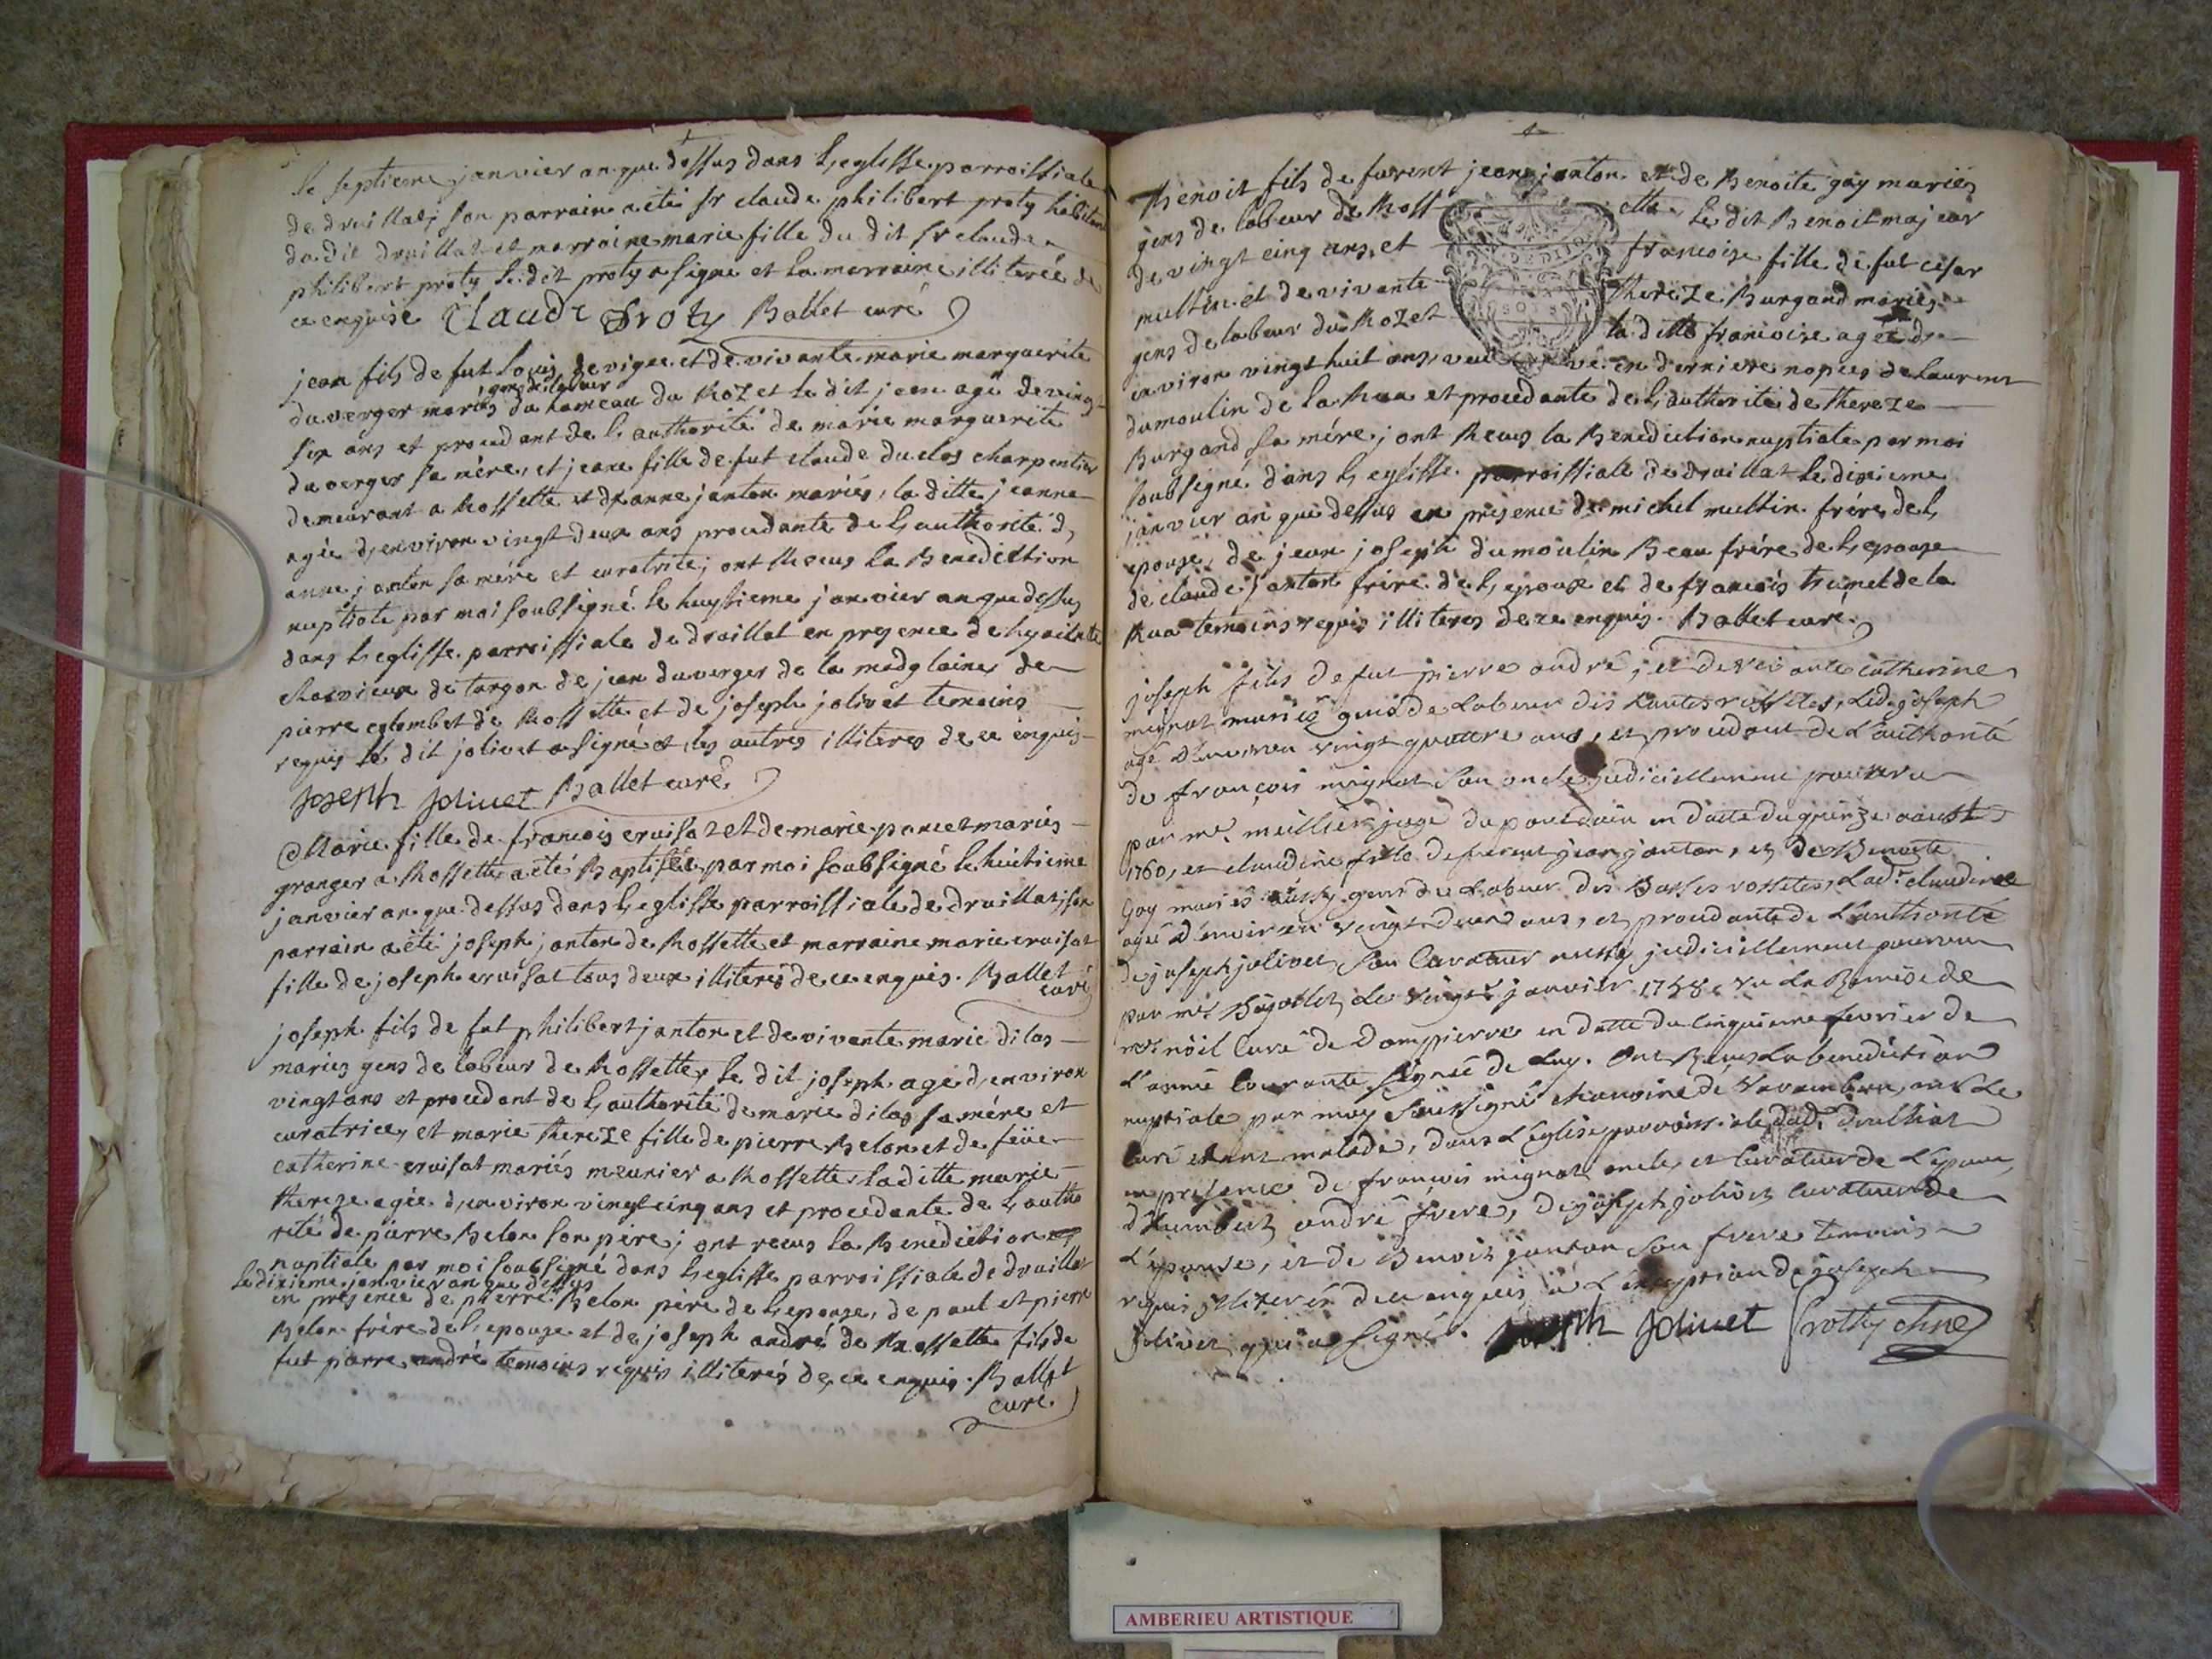 le septieme janvier an que dessus dans l,eglisse parroissiale
de druillat; son parrain a été sr claude philibert proty habitant
du dit druillat et marraine marie fille du dit sr claude
philibert proty le dit proty a signé et la marraine illiterée de
ce enquise Claude Proty Ballet curé
jean fils de fut louis devigne et de vivante marie marguerite
gens de labeur
duverger mariés du hameau du Rozet le dit jean agé de vingt
six ans et procedant de l,authorité de marie marguerite
duverger sa mère, et jeane fille de fut claude duclos charpentier
demeurant a Rossette et d,anne janton mariés, la ditte jeanne
agée d,environ vingt deux ans procedante de l,authorité d,
anne janton sa mére et curatrice; ont Receus la Benediction
nuptiale par moi soubsigné le huysieme janvier an que dessus
dans l,eglisse parroissiale de druillat en presence de hyacinte
charvieux de turgon de jean duverger de la
pierre colombet de Rossette et de joseph jolivet temoins
requis le dit jolivet a signé et les autres illiteres de ce enquis
Joseph Jolivet Ballet curé
Marie fille de francois cruisat et de marie poncet mariés
granger a Rossette a été Baptisée par moi soubsigné le huictieme
janvier an que dessus dans l,eglisse parroissiale de druillat; son
parrain a été joseph janton de Rossette et marraine marie cruisat
fille de joseph cruisat tous deux illiterés de ce enquis. Ballet
curé
joseph fils de fut philibert janton et de vivante marie dilas
mariés gens de labeur de Rossette, le dit joseph agé d,environ
vingt ans et procedant de l,authorité de marie dilas sa mére et
curatrice, et marie thereze fille de pierre Belon et de feüe
catherine cruisat mariés meunier a Rossette laditte marie
thereze agée d,environ vingt cinq ans et procedante de l,autho
rité de pierre Belon son père; ont receus la Benediction
nuptiale par moi soubsigné dans l,eglisse parroissiale de druillat
le dixieme janvier an que dessus
en presence de pierre Belon père de l,epouze, de paul et pierre
Belon frére de l,epouze et de joseph andré de Rossette fils de
fut pierre andré temoins requis illiterés de ce enquis. Ballet
curé.
Benoit fils de furent jean janton et de Benoite gay mariés
gens de labeur de Rossette le dit Benoit majeur
de vingt cinq ans, et francoise fille de fut cesar
multin et de vivante thereze Burgand mariés
gens de labeur du Rozet la ditte francoise agée d,
environ vingt huit ans, veuve en derniere nopces de laurent
dumoulin de la Rua et procedante de l,authorité de thereze
Burgand sa mére; ont Receus la Benediction nuptiale par moi
soubsigné dans l,eglisse parroissiale de druillat le dixieme
janvier an que dessus en presence de michel multin frére de l,
epouze, de jean joseph dumoulin Beau frére de l,epouze
de claude janton frére de l,epoux et de francois trumel de la
Rua temoins requis illiteres de ce enquis. Ballet curé.
joseph fils de fut pierre andré, et de vivante catherine
mignot mariés gens de labeur des hautes rossettes, led. joseph
agé d'environ vingt quattre ans, et procedant de l'authorité
de françois mignot son oncle judiciellement pourveu
par me. meillier juge du pont dain en datte du quinze aoust
1760, et claudine fille de furent jean janton, et de Benoite
Gay mariés aussy gens de labeur des Basses rossettes, lade. claudine
agée d'environ vingt deux ans, et procedante de l'authorité
de joseph jolivet son curateur aussy judiciellement pourveu
par me. le vingt janvier 1758, vu la Remise de
mre. nöel curé de Dompierre en datte du cinquieme fevrier de
l'année courante signée de luy. Ont Receus la benediction
nuptiale par moy soussigné chanoine de Varambon, mr le
curé etant malade, dans l'eglise parroissiale dud. druillat
en presence de françois mignot oncle et curateur de l'epoux,
d'humbert andré frere, de joseph jolivet curateur de
l'epouse, et de Benoit janton son frere temoins
requis illiterés de ce enquis à l'exception de joseph
jolivet qui a signé. Joseph Jolivet Prothy chne
AMBERIEU ARTISTIQUE